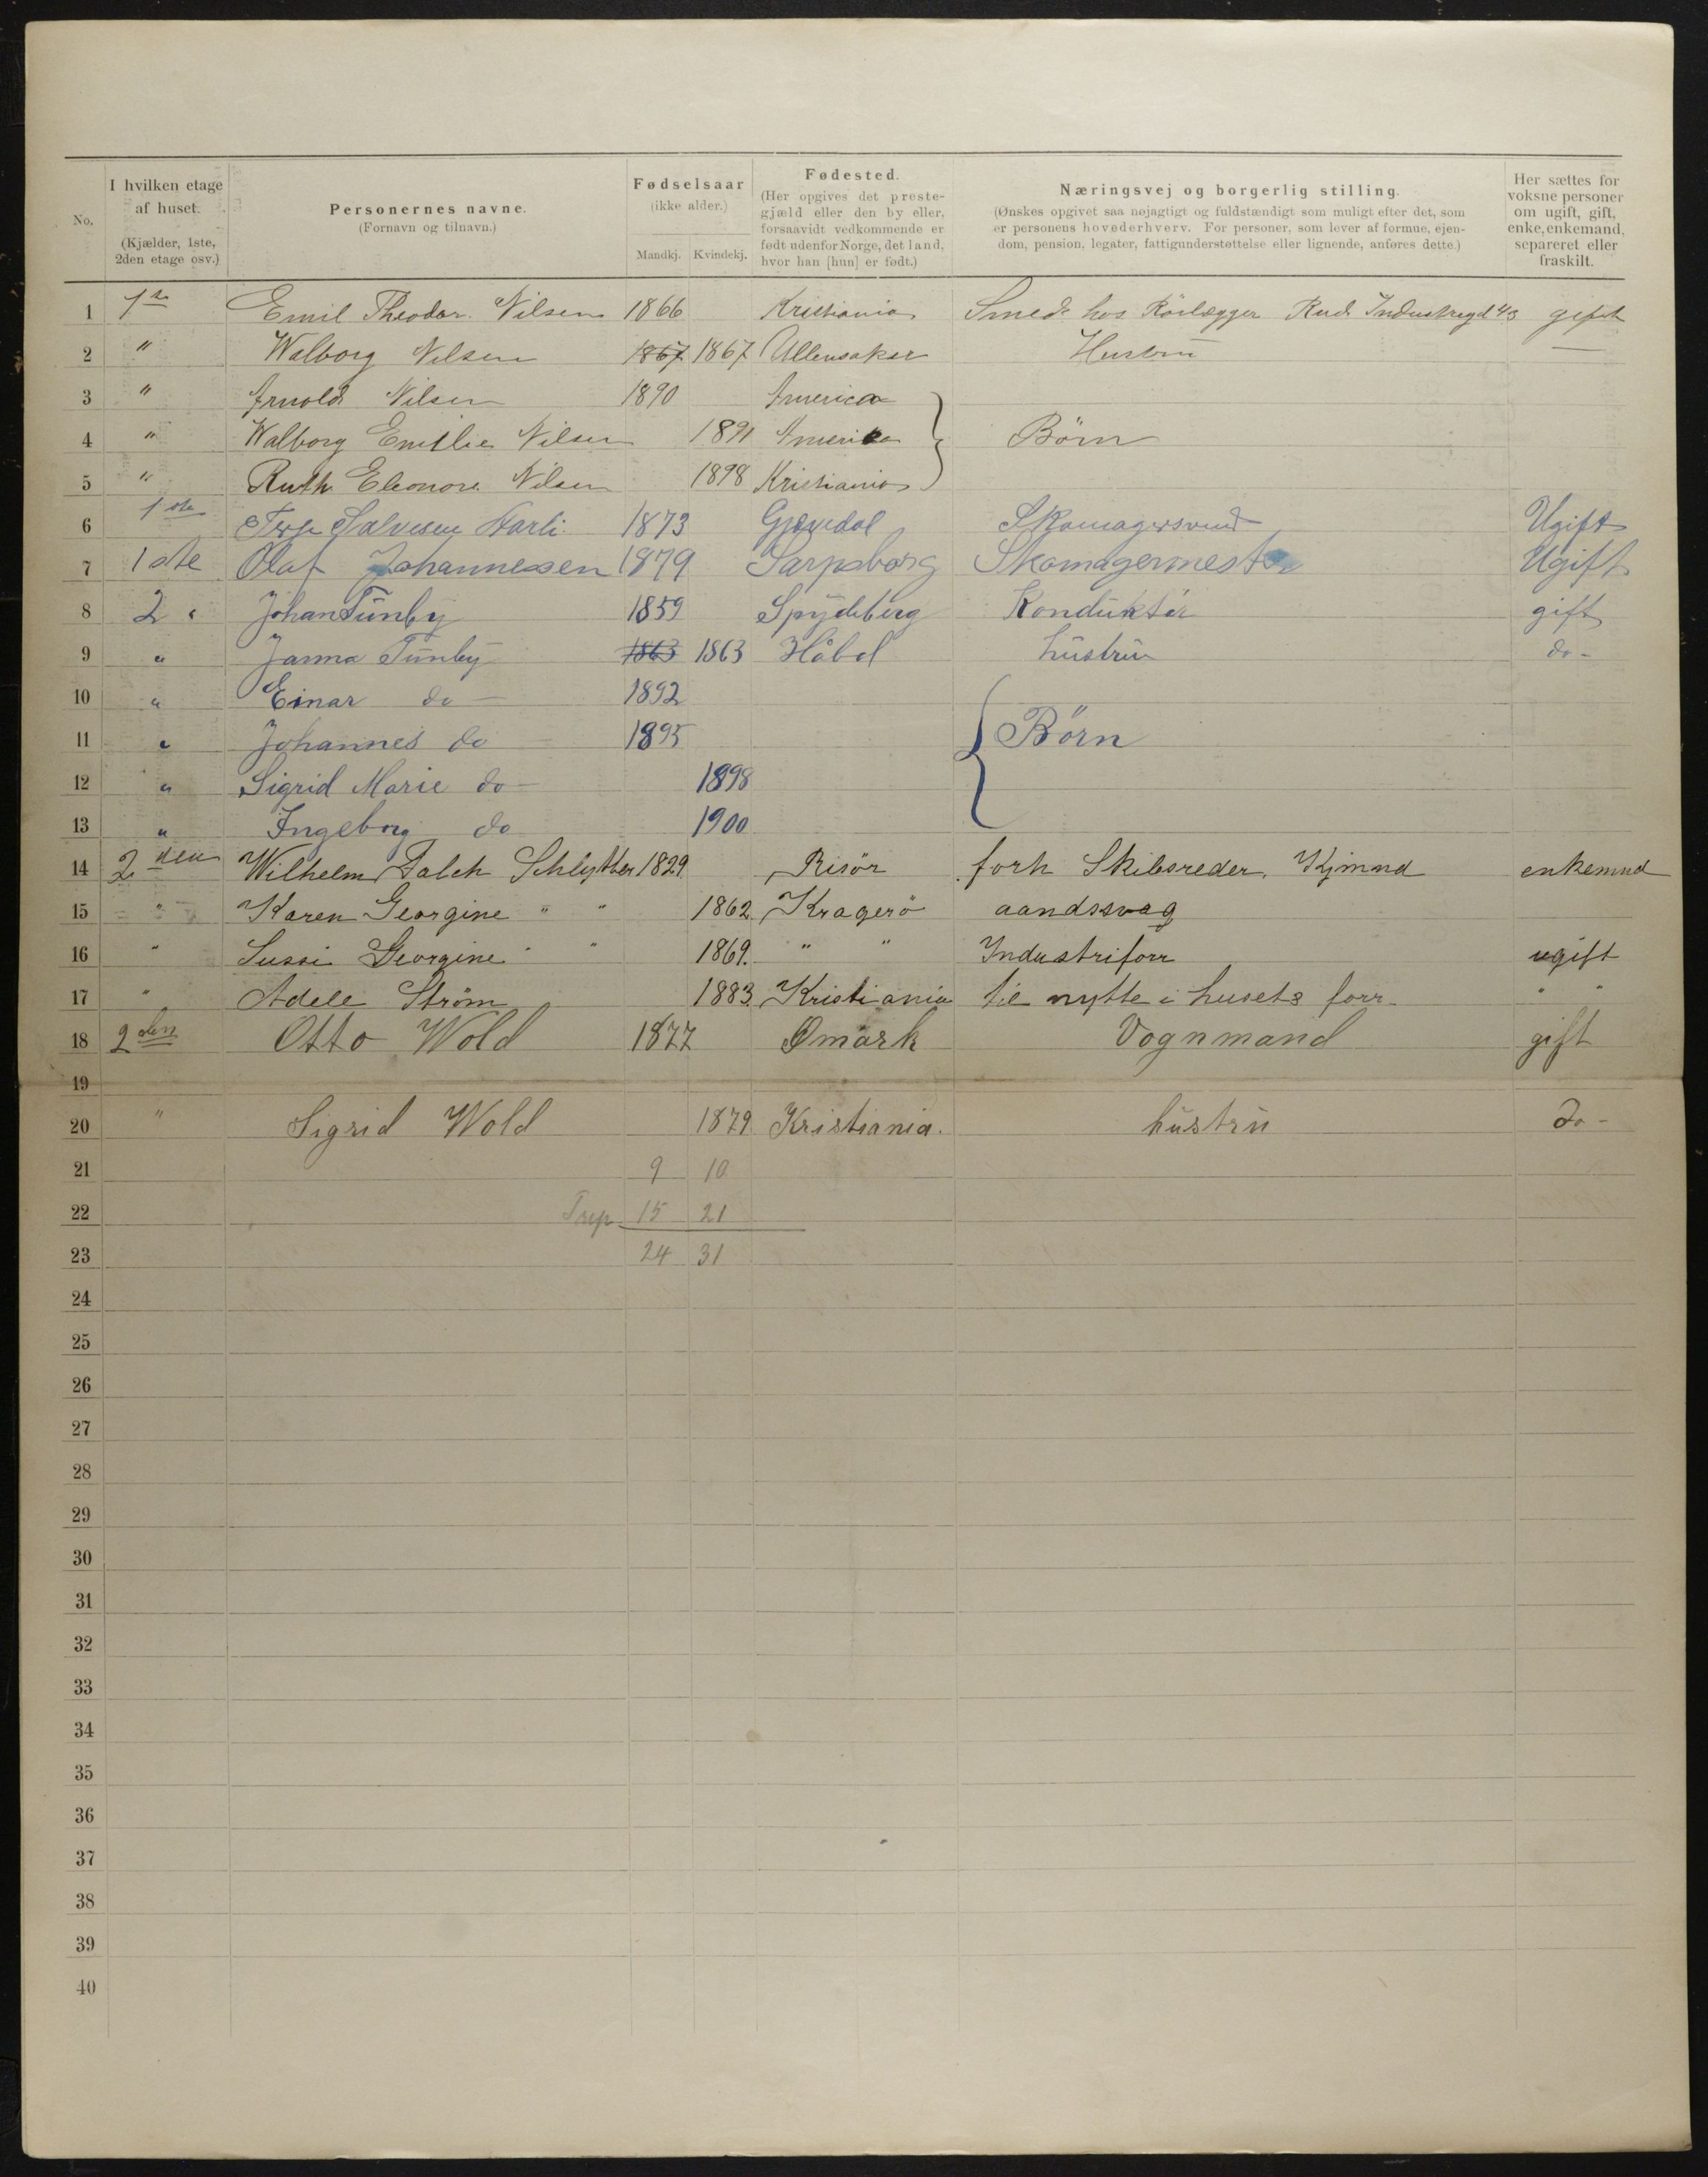 No.
I hvilken etage af huset. (Kjælder, 1ste, 2den etage osv.)
Personernes navne. (Fornavn og tilnavn.)
Fødselsaar (ikke alder.) Mandkj. Kvindekj.
Fødested. (Her opgives det prestegjæld eller den by eller, forsaavidt vedkommende er født udenfor Norge, det land, hvor han [hun] er født.)
Næringsvej og borgerlig stilling. (Ønskes opgivet saa nøjagtigt og fuldstændigt som muligt efter det, som er personens hovederhverv. For personer, som lever af formue, ejendom, pension, legater, fattigunderstøttelse eller lignende, anføres dette.)
Her sættes for voksne personer om ugift, gift, enke, enkemand, separeret eller fraskilt.
1 1ste Emil Theodor Nilsen 1866 Kristiania Smed hos Rörlægger Rud Industrigd 43 gift
2 " Walborg Nilsen 1867 1867 Ullensaker Hustru —
3 " Arnold Nilsen 1890 America
4 " Walborg Emilie Nilsen 1891 Amerika Börn
5 " Ruth Eleonore Nilsen 1898 Kristiania
6 1ste Terje Salvesen Harli 1873 Gjøvdal Skomagersvend Ugift
7 1ste Olaf Johannessen 1879 Sarpsborg Skomagermester Ugift
8 2 " Johan Tunby 1859 Spydeberg Konduktör gift
9 " Janna Tunby 1863 1863 Håbøl hustru do -
10 " Einar do — 1892
11 " Johannes do — 1895 Börn
12 " Sigrid Marie do — 1898
13 " Ingeborg do 1900
14 2den Wilhelm Falck Schlytter 1829 Risör forh Skibsreder, Kjmnd enkemnd
15 " Karen Georgine " " 1862 Kragerö aandssvag
16 " Sussi Georgine " " 1869. " " Industriforr ugift
17 " Adele Ström 1883 Kristiania til nytte i husets forr " "
18 2den Otto Wold 1877 Ømark Vognmand gift
19
20 " Sigrid Wold 1879 Kristiania. hustru do -
21 9 10
22 15 21
23 24 31
24
25
26
27
28
29
30
31
32
33
34
35
36
37
38
39
40